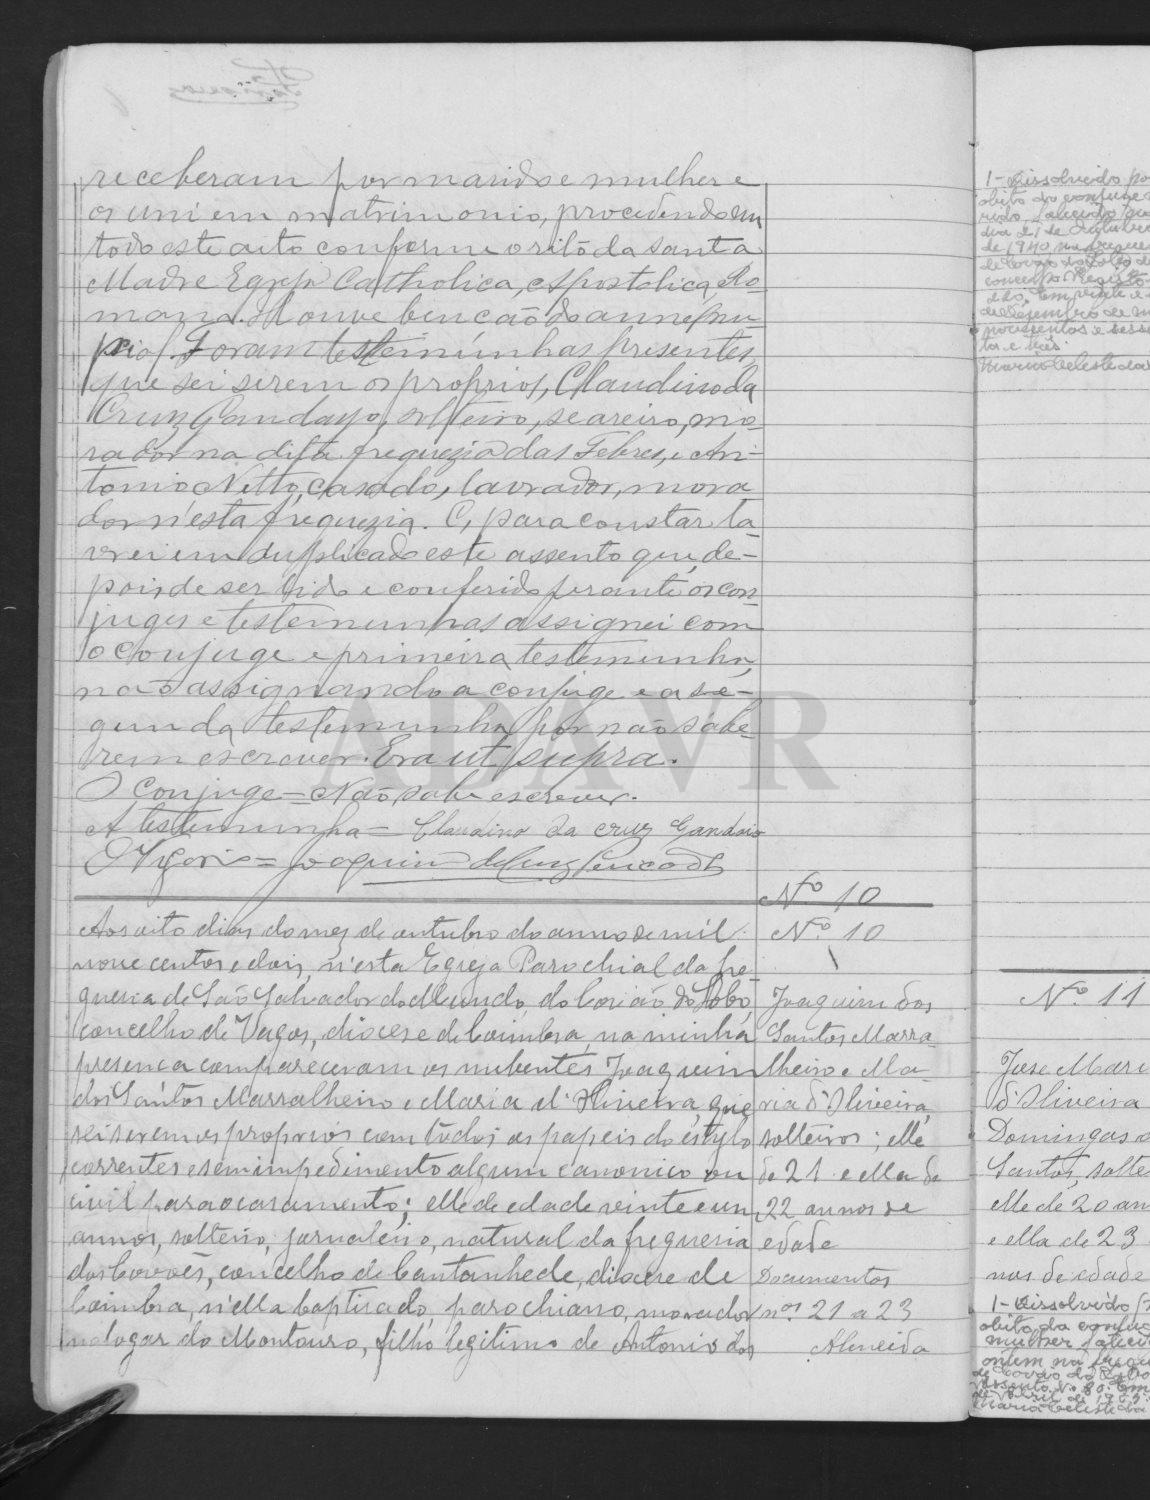 receberam por marido e mulher e
os uni em matrimonio, procedendo em
todo este acto conforme o rito da santa
Madre Egreja Catholica, Apostolica, Ro-
mana. Houve benção do annel nu-
pcial. Foram testemunhas presentes,
que sei serem os proprios, Claudino da
Cruz Gandayo, solteiro, seareiro, mo-
rador na dita freguezia das Febres, e An-
tonio Netto, casado, lavrador, mora
dor n'esta freguezia. E, para constar la
vrei em duplicado este assento que, de-
pois de ser lido e conferido perante os con-
juges e testemunhas assignei com
o conjuge e primeira testemunha,
não assignando a conjuge e a se-
gunda testemunha por não sabe-
rem escrever. Era ut supra.
O Conjuge = Não sabe escrever.
A testemunha = Claudino da Cruz Gandaio
O Vigario = Joaquim da Cruz
Nº 10
Aos oito dias do mez de outubro do anno de mil
nove centos e dois, n'esta Egreja Parochial da fre-
guesia de São Salvador do Mundo, do Covão do Lobo,
concelho de Vagos, diocese de Coimbra, na minha
presença compareceram os nubentes Joaquim
dos Santos Marralheiro e Maria d'Oliveira, que
sei serem os proprios com todos os papeis do estylo
correntes e sem impedimento algum canonico ou
civil para o casamento; elle de edade vinte e um
annos, solteiro, jornaleiro, natural da freguesia
dos Covões, concelho de Cantanhede, diocese de
Coimbra, n'ella baptisado, parochiano, morador
no logar do Montouro, filho legitimo de Antonio dos
Nº 10
Joaquim dos
Santos Marra-
lheiro e Ma-
ria d'Oliveira,
solteiros; elle
de 21 e ella de
22 annos de
edade
Documentos
nos 21 a 23
Almeida
1- Dissolvido po
obito do conjuge
rido, falecido
dia 21 de
de 1940 na
de Covão do Lobo
concelho Registo
Em vinte e
de Dezembro de
novecentos e sess
ta e três.
Maria Celeste
Nº 11
Jose Mari
d'Oliveira
Domingas
Santos, solte
elle de 20 an
e ella de 23
nos de edade
1- Dissolvido
obito da conjug
mulher falecid
ontem na fregu
de Covão do Lobo
Assento Nº 80. Em
de Abril de
Maria Celeste
ADAVR